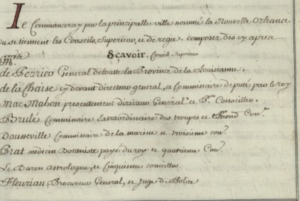 Je Commenceray par la principalle ville nommée la Nouvelle Orleans
ou se tiennent les Conseils, Superieur, et de regie, composez des cy apres
Sçavoir. Conseil Superieur
Mr.
de Perrier General de toutte la Province de la Louisianne.
de la Chaise cy devant directeur general, et Commissaire deputé par le roy
Mac Mahon presentement directeur General et Pr. Conseiller
Brulé Commissaire Extraordinaire des troupes et Second Con.er
Dausseville Commissaire de la marine et troisieme con.er
Prat medecin Botaniste payé du roy et quatrieme Con.er
Le Baron astrologue, et Cinquieme conseiller
Fleuriau Procureur General, et Juge de Police